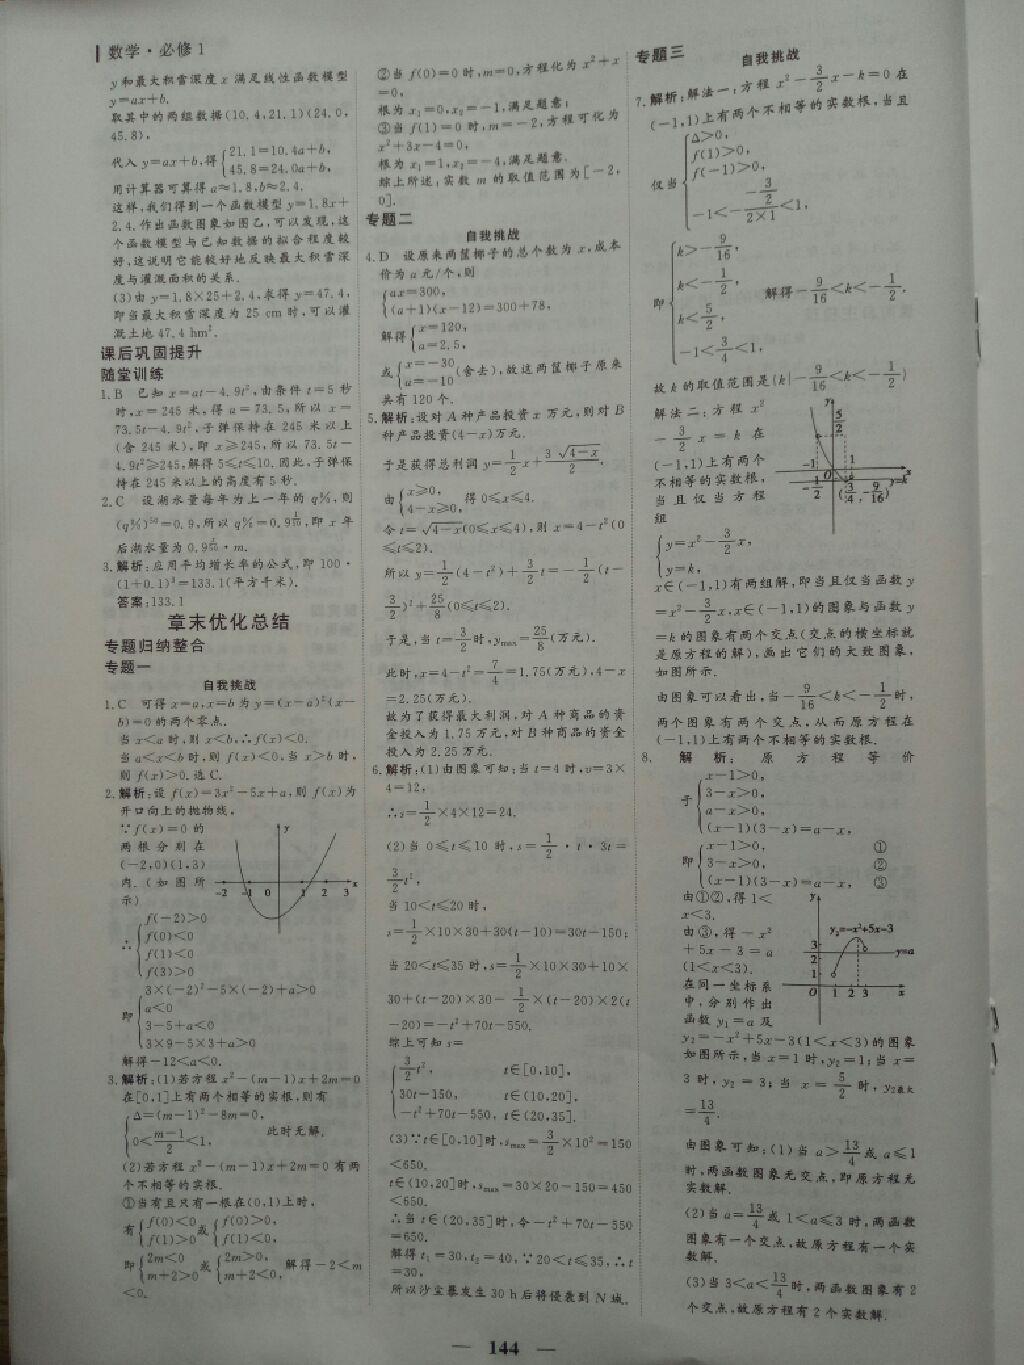 数学·必修1
y和最大积雪深度x满足线性函数模型
y=ax+b.
取其中的两组数据(10.4,21.1)(24.0,
45.8),
代入y=ax+b,得{21.1=10.4a+b,
45.8=24.0a+b,
用计算器可算得a≈1.8,b≈2.4.
这样,我们得到一个函数模型y=1.8x+
2.4.作出函数图象如图乙,可以发现,这
个函数模型与已知数据的拟合程度较
好,这说明它能较好地反映最大积雪深
度与灌溉面积的关系.
(3)由y=1.8×25+2.4,求得y=47.4,
即当最大积雪深度为25 cm时,可以灌
溉土地47.4 hm².
课后巩固提升
随堂训练
1.B 已知x=at-4.9t²,由条件t=5秒
时,x=245米,得a=73.5,所以x=
73.5t-4.9t²,子弹保持在245米以上
(含245米),即x≥245,所以73.5t-
4.9t²≥245,解得5≤t≤10.因此,子弹保
持在245米以上的高度有5秒.
2.C 设湖水量每年为上一年的q%,则
(q%)⁵⁰=0.9,所以q%=0.9^(1/50),即x年
后湖水量为0.9^(x/50)·m.
3.解析:应用平均增长率的公式,即100·
(1+0.1)³=133.1(平方千米).
答案:133.1
章末优化总结
专题归纳整合
专题一
自我挑战
1.C 可得x=a,x=b为y=(x-a)²(x-
b)=0的两个零点.
当x<a时,则x<b,∴f(x)<0.
当a<x<b时,则f(x)<0,当x>b时,
则f(x)>0.选C.
2.解析:设f(x)=3x²-5x+a,则f(x)为
开口向上的抛物线,
∵f(x)=0的
两根分别在
(-2,0)(1,3)
内.(如图所
示)
y
-2 -1 0 1 2 3 x
∴{f(-2)>0
f(0)<0
f(1)<0
f(3)>0
即{3×(-2)²-5×(-2)+a>0
a<0
3-5+a<0
3×9-5×3+a>0
解得-12<a<0.
3.解析:(1)若方程x²-(m-1)x+2m=0
在[0,1]上有两个相等的实根,则有
{Δ=(m-1)²-8m=0,
0<(m-1)/2<1,
此时无解.
(2)若方程x²-(m-1)x+2m=0有两
个不相等的实根.
①当有且只有一根在(0,1)上时,
有{f(0)<0 f(1)>0 或{f(0)>0, f(1)<0,
即{2m<0 m+2>0 或{2m>0, m+2<0, 解得-2<m
<0.
②当f(0)=0时,m=0,方程化为x²+x
=0,
根为x₁=0,x₂=-1,满足题意;
③当f(1)=0时,m=-2,方程可化为
x²+3x-4=0,
根为x₁=1,x₂=-4,满足题意.
综上所述,实数m的取值范围为[-2,
0].
专题二
自我挑战
4.D 设原来两筐椰子的总个数为x,成本
价为a元/个,则
{ax=300,
(a+1)(x-12)=300+78,
解得{x=120,
a=2.5,
或{x=-30
a=-10(舍去),故这两筐椰子原来
共有120个.
5.解析:设对A种产品投资x万元,则对B
种产品投资(4-x)万元.
于是获得总利润y=1/2x+3√(4-x)/2,
由{x≥0,
4-x≥0,
得0≤x≤4.
令t=√(4-x)(0≤x≤4),则x=4-t²(0
≤t≤2).
所以y=1/2(4-t²)+3/2t=-1/2(t-
3/2)²+25/8(0≤t≤2).
于是,当t=3/2时,y_max=25/8(万元).
此时,x=4-t²=7/4=1.75(万元),4-x
=2.25(万元).
故为了获得最大利润,对A种商品的资
金投入为1.75万元,对B种商品的资金
投入为2.25万元.
6.解析:(1)由图象可知:当t=4时,v=3×
4=12,
∴s=1/2×4×12=24.
(2)当0≤t≤10时,s=1/2·t·3t=
3/2t²,
当10<t≤20时,
s=1/2×10×30+30(t-10)=30t-150;
当20<t≤35时,s=1/2×10×30+10×
30+(t-20)×30-1/2×(t-20)×2(t
-20)=-t²+70t-550.
综上可知s=
{3/2t², t∈[0,10],
30t-150, t∈(10,20],
-t²+70t-550, t∈(20,35].
(3)∵t∈[0,10]时,s_max=3/2×10²=150
<650.
t∈(10,20]时,s_max=30×20-150=450
<650.
∴当t∈(20,35]时,令-t²+70t-550
=650.
解得t₁=30,t₂=40,∵20<t≤35,∴t
=30,
所以沙尘暴发生30 h后将侵袭到N城.
专题三
自我挑战
7.解析:解法一:方程x²-3/2x-k=0在
(-1,1)上有两个不相等的实数根,当且
仅当{Δ>0,
f(1)>0,
f(-1)>0,
-1<-(-3/2)/(2×1)<1,
即{k>-9/16,
k<-1/2,
k<5/2,
-1<3/4<1,
解得-9/16<k<-1/2,
故k的取值范围是{k|-9/16<k<-1/2}
解法二:方程x²
-3/2x=k在
(-1,1)上有两个
不相等的实数根,
当且仅当方程
组
y
5/2
-1 O 1 x
-1/2 (3/4,-9/16) y=k
{y=x²-3/2x,
y=k,
x∈(-1,1)有两组解,即当且仅当函数y
=x²-3/2x,x∈(-1,1)的图象与函数y
=k的图象有两个交点(交点的横坐标就
是原方程的解),画出它们的大致图象,
如图所示.
由图象可以看出,当-9/16<k<-1/2时,
两个图象有两个交点,从而原方程在
(-1,1)上有两个不相等的实数根.
8. 解析:原方程等价
于{x-1>0,
3-x>0,
a-x>0,
(x-1)(3-x)=a-x,
即{x-1>0, ①
3-x>0, ②
(x-1)(3-x)=a-x, ③
由①②,得1<
x<3.
由③,得-x²
+5x-3=a
(1<x<3).
在同一坐标系
中,分别作出
函数y₁=a及
y
y₂=-x²+5x-3
3
2
y=a
1
O 1 2 3 x
y₂=-x²+5x-3(1<x<3)的图象
如图所示,当x=1时,y₂=1;当x=
3时,y₂=3;当x=5/2时,y₂最大
=13/4.
由图象可知:(1)当a>13/4或a≤1
时,两函数图象无交点,即原方程无
实数解.
(2)当a=13/4或1<a≤3时,两函数
图象有一个交点,故原方程有一个实
数解.
(3)当3<a<13/4时,两函数图象有2
个交点,故原方程有2个实数解.
— 144 —